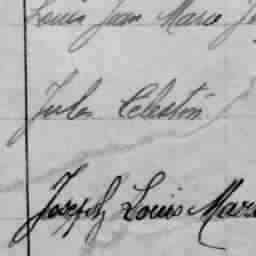 Louis Jean Marie
Jules Celestin
Joseph Louis Marie